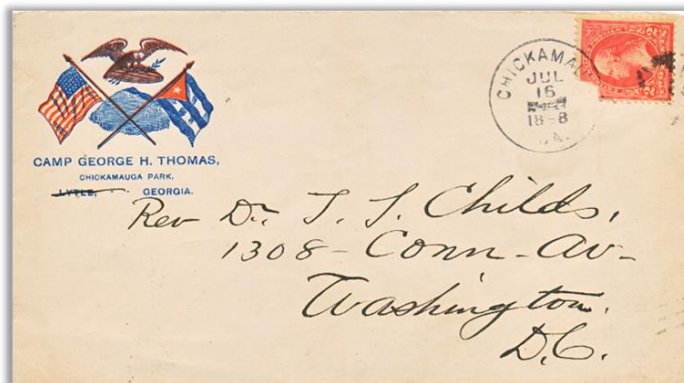 CAMP GEORGE H. THOMAS,
CHICKAMAUGA PARK,
LYTLE, GEORGIA.
CHICKAMA
JUL
16
Rev Dr. T. S. Childs,
1308 - Conn - Av -
Washington.
D.C.